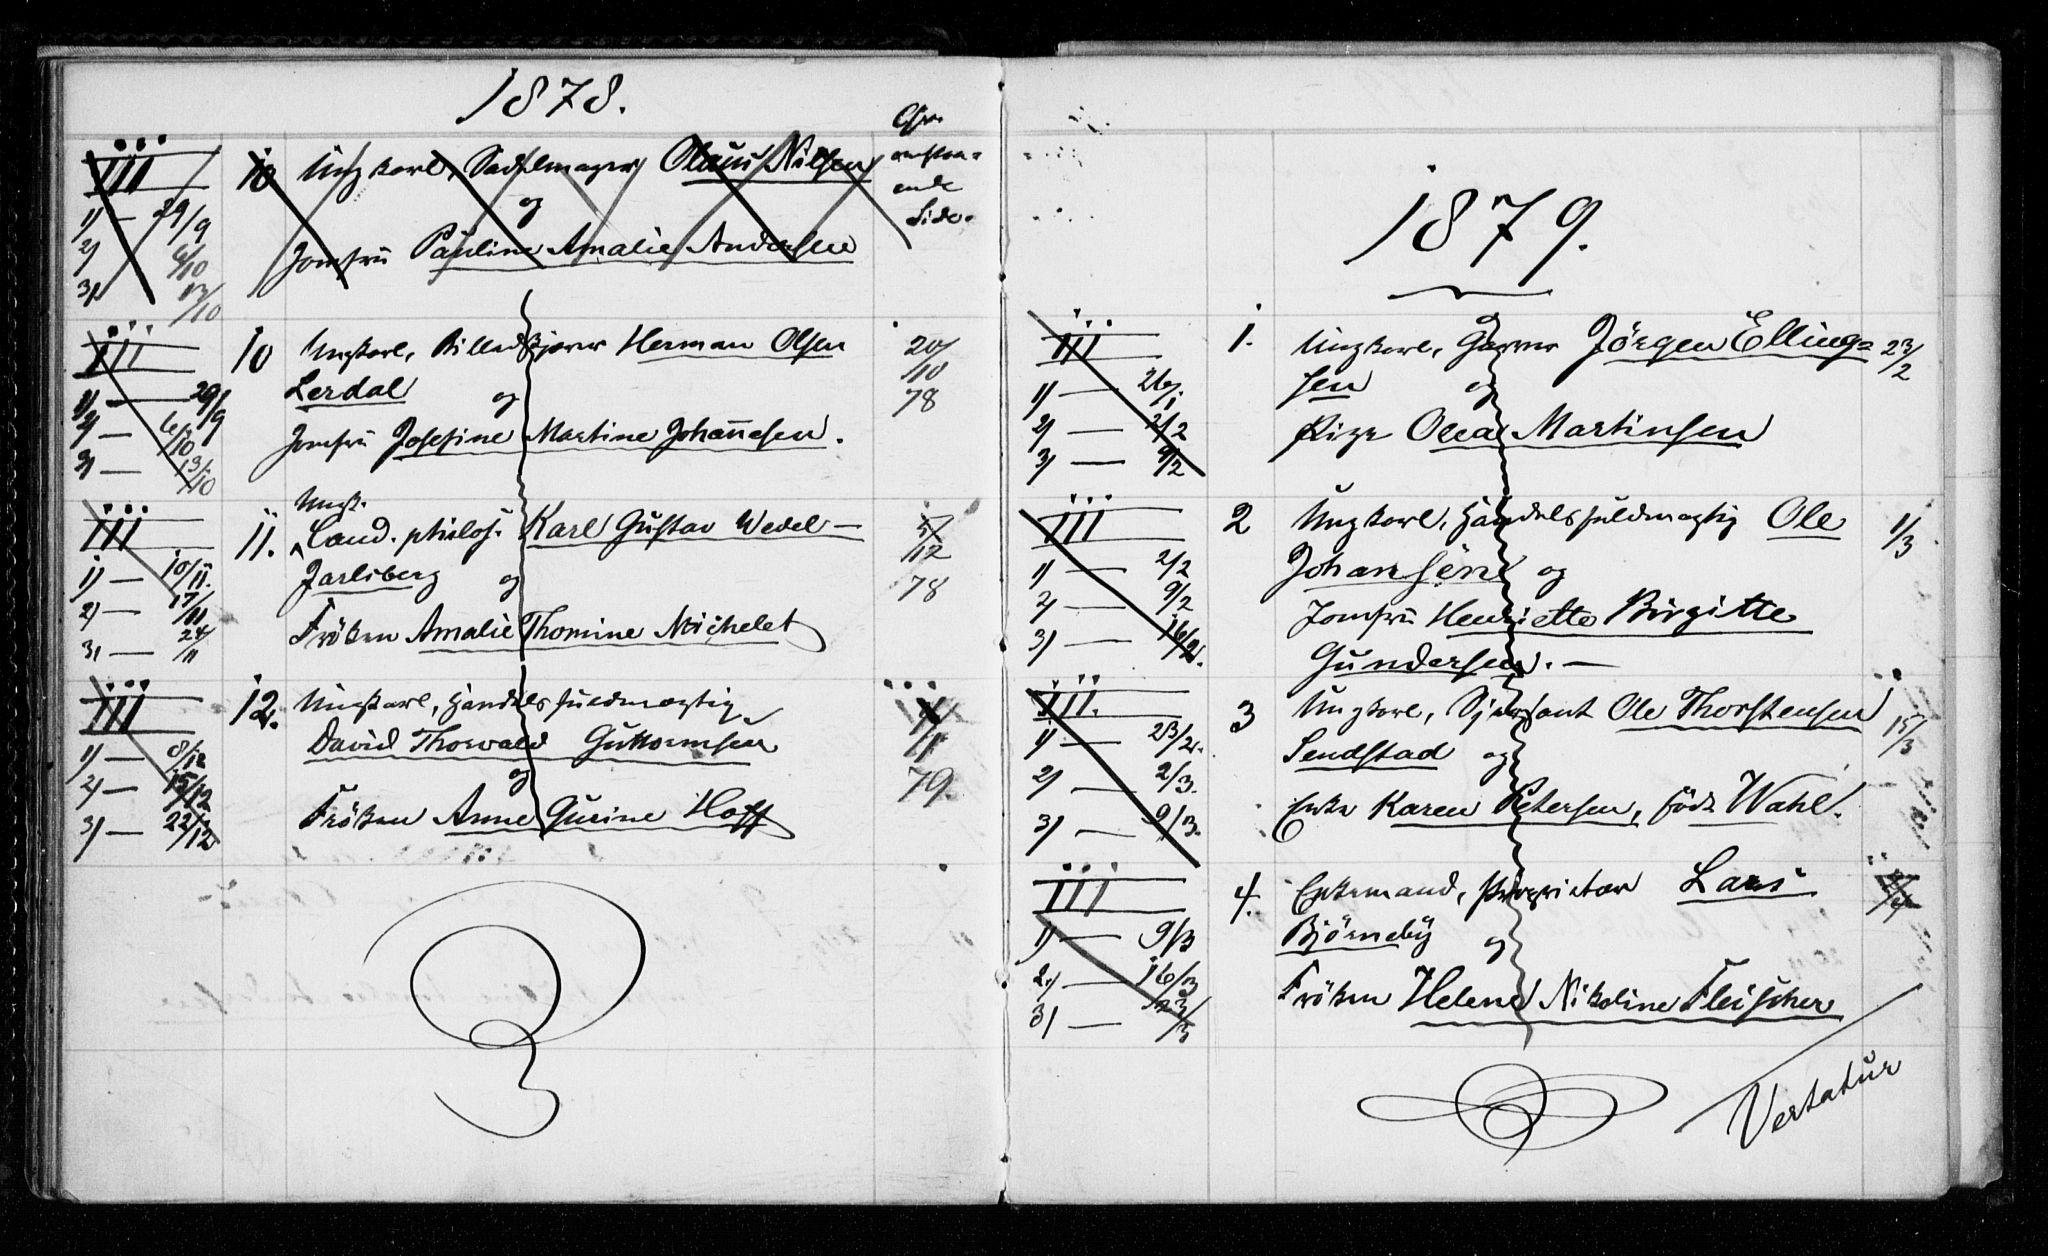 1878.
iii 10 Ungkarl, Sadelmager Olaus Nilsen
og
Jomfru Pauline Amalie Andersen
ende
Side.
1) — 29/9
2) 6/10
3) 13/10
iii 10 Ungkarl, Billedskjærer Herman Olsen
Lerdal og
Jomfru Josefine Martine Johannesen.
1) — 29/9
2) — 6/10
3) — 13/10
20/10
78
Ungk.
iii 11. Cand. philos. Karl Gustav Wedel-
Jarlsberg og
Frøken Amalie Thomine Michelet
1) — 10/11.
2) — 17/11
3) — 24/11
12
78
iii 12. Ungkarl, Handelsfuldmægtig
David Thorvald Guttormsen
og
Frøken Anne Gurine Hoff
1) — 8/12
2) — 15/12
3) — 22/12
79.
1879.
iii 1. Ungkarl, Garver Jörgen Elling=
sen og
Pige Olea Martinsen
1) — 26/1
2) — 2/2
3) — 9/2
23/2
iii 2 Ungkarl, Handelsfuldmægtig Ole
Johansen og
Jomfru Henriette Birgitte
Gundersen. —
1) — 2/2
2) — 9/2
3) — 16/2.
1/3
iii. 3 Ungkarl, Sjersant Ole Thorstensen
Sendstad og
Enke Karen Petersen, født Wahl.
1) — 23/2.
2) — 2/3.
3) — 9/3.
15/3
iii 4. Enkemand, Proprietær Lars
Bjørneby og
Frøken Helene Nikoline Fleischer
1) — 9/3
2) — 16/3
3) — 23/3
Vertatur